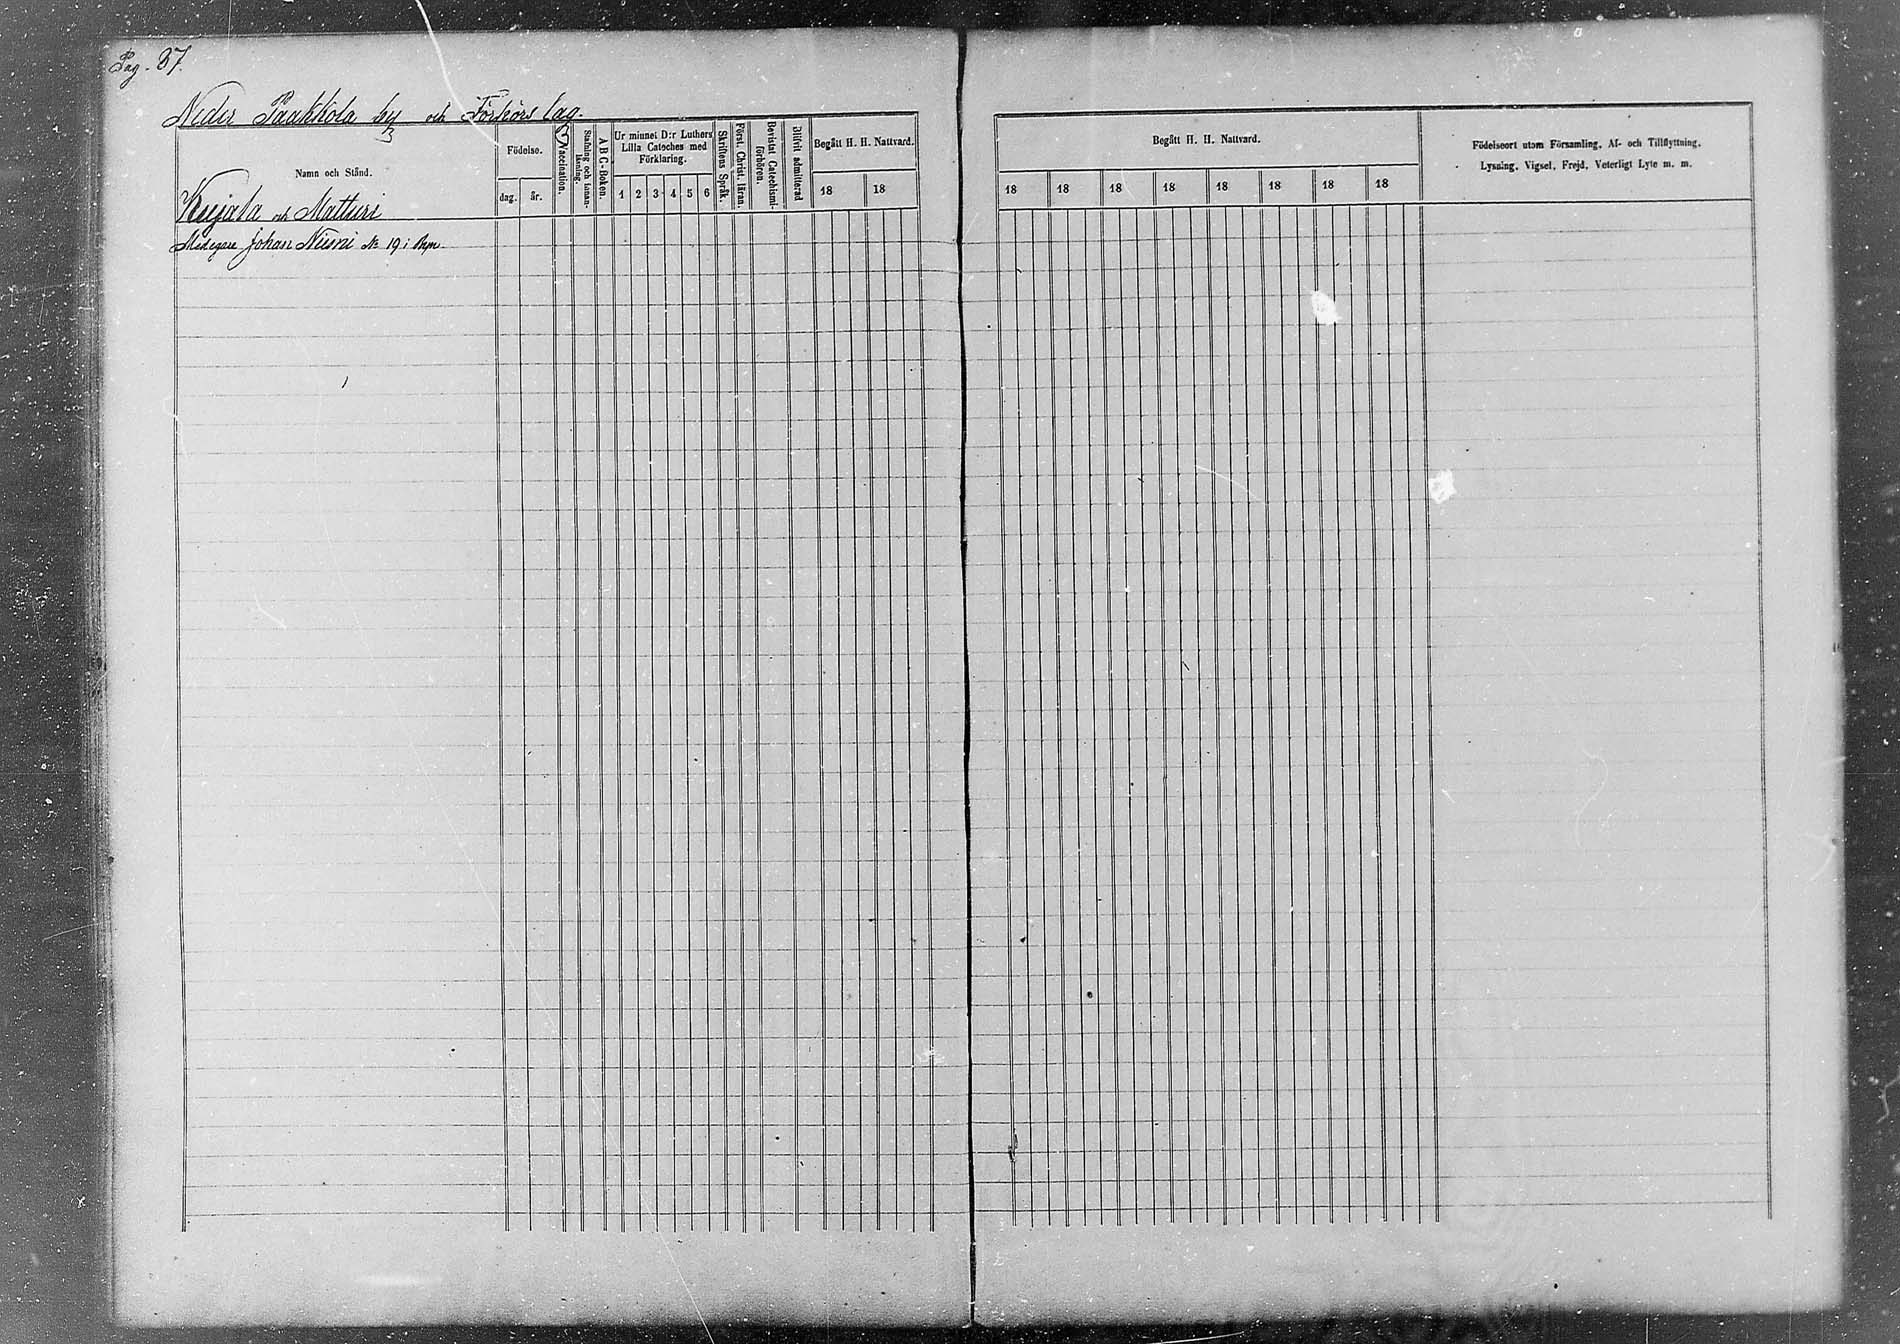 Pag. 37.
Neder Paakkola by och Förhörs lag.
Namn och Stånd.
Födelse.
dag.
år.
Vaccination.
Stafning och Innanläsning.
A B C-Boken.
Ur minnet D:r Luthers
Lilla Cateches med
Förklaring.
1 2 3 4 5 6
Skriftens Språk.
Först. Christ. läran.
Bevistat Catechismi-
förhören.
Blifvit admitterad
Begått H. H. Nattvard.
18 18
Kujala och Matturi
Johan Niemi № 19 i
Begått H. H. Nattvard.
18 18 18 18 18 18 18 18
Födelseort utom Församling, Af- och Tillflyttning,
Lysning, Vigsel, Frejd, Veterligt Lyte m. m.